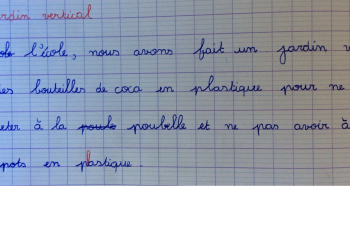 ardin vertical
l'école, nous avons fait un jardin v
es bouteilles de coca en plastique pour ne
eter à la poubelle et ne pas avoir à
pots en plastique.